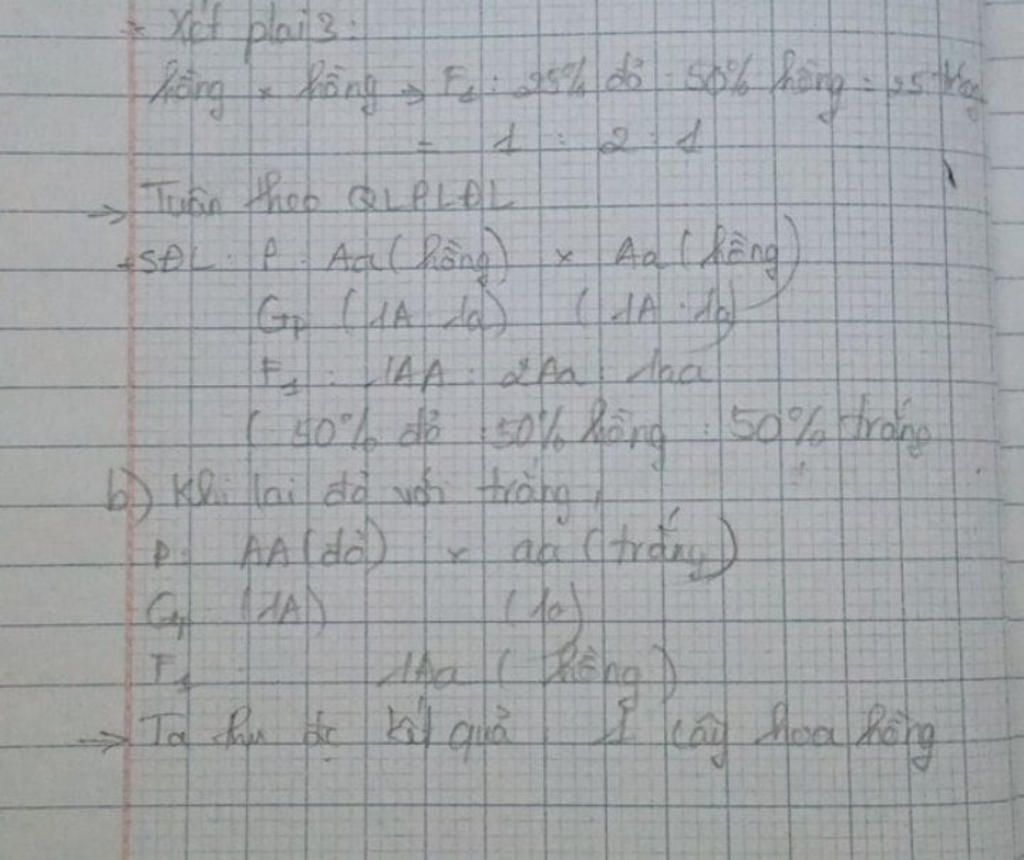 + Xét plai 3:
hồng × hồng → F1: 25% đỏ : 50% hồng : 25 trắng
= 1 : 2 : 1
→ Tuân theo QLPLĐL
+ SĐL: P: Aa (hồng) × Aa (hồng)
Gp (1A : 1a) (1A : 1a)
F1 : 1AA : 2Aa : 1aa
( 50% đỏ : 50% hồng : 50% trắng
b) Khi lai đỏ với trắng
P: AA (đỏ) × aa (trắng)
Gp (1A) (1a)
F1 1Aa ( hồng )
→ Ta thu đc kết quả 1 cây hoa hồng